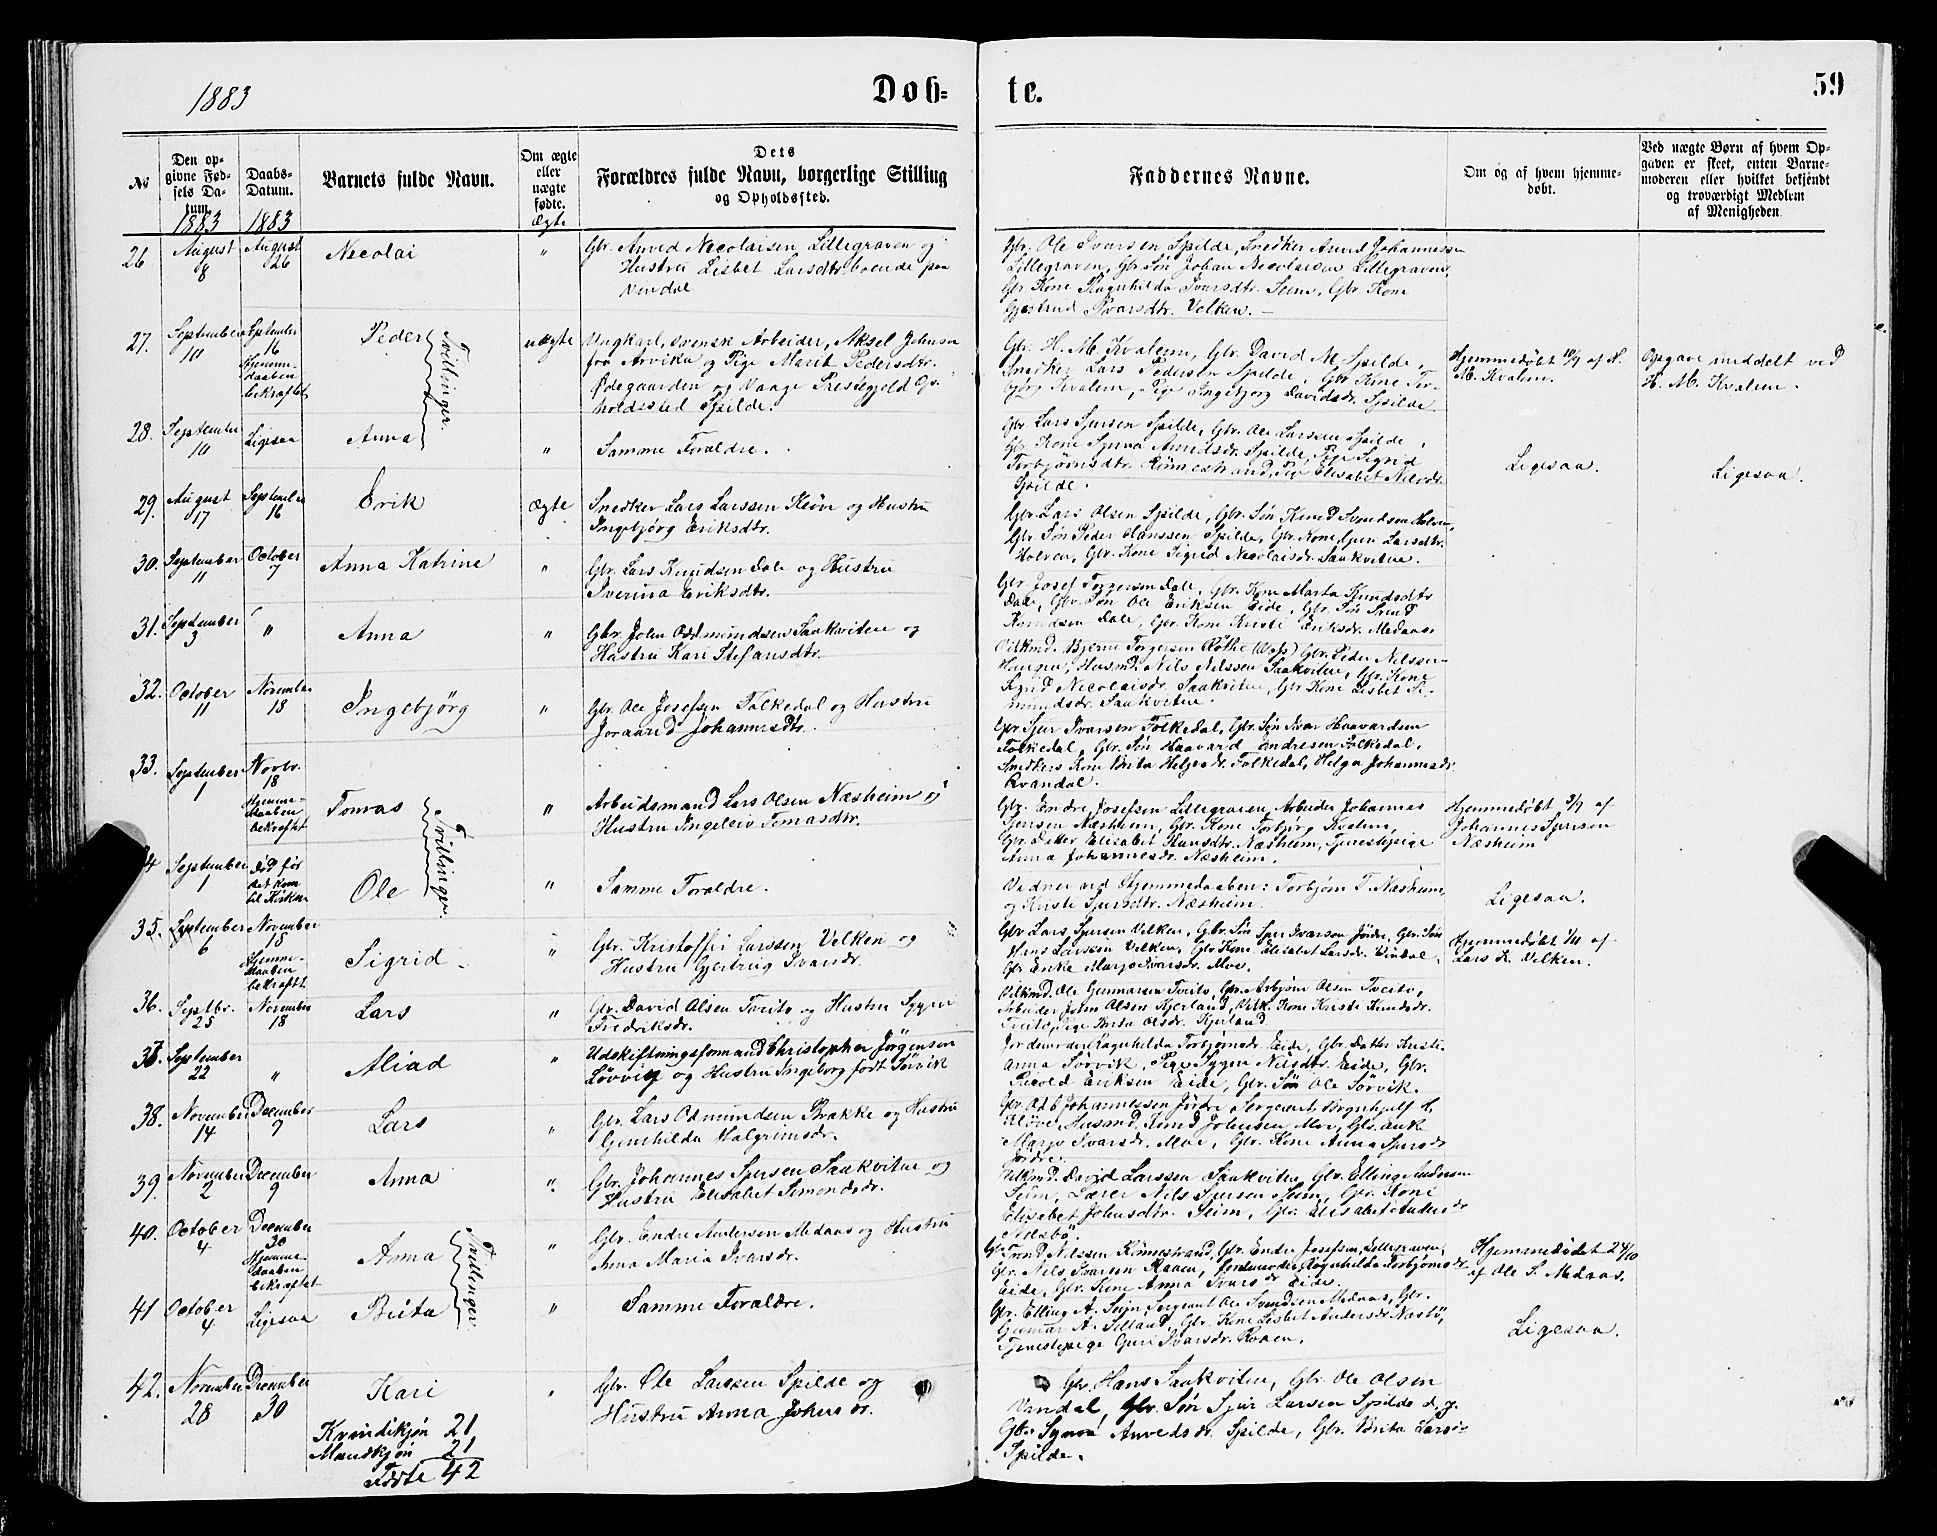 1883
Døb=
te.
59
№
Den op=
givne Fød=
sels Da=
tum.
1883
Daabs=
Datum.
1883
Barnets fulde Navn.
Om ægte
eller
uægte
fødte.
Ægte
Dets
Forældres fulde Navn, borgerlige Stilling
og Opholdssted.
Faddernes Navne.
Om og af hvem hjemme=
døbt.
Ved uægte Børn af hvem Op=
gaven er skeet, enten Barne=
moderen eller hvilket bekjendt
og troværdigt Medlem
af Menigheden
26
August
8
August
26
Nicolai
"
Gbr. Anved Nicolaisen Lillegraven og
Hustru Lisbet Larsdtr. boende paa
Vindal
Gbr. Ole Ivarsen Spilde, Snedker Anved Johannessen
Lillegraven, Gbr Søn Johan Nicolaisen Lillegraven,
Gbr Kone Ragnhilda Ivarsdtr. Seim, Gbr Kone
Gjertrud Ivarsdtr. Velken. –
27.
September
10
September
16
Hjemme-
daaben
bekræftet
Peder
Tvillinger.
uægte
Ungkarl, svensk Arbeider, Aksel Johnsen
fra Arvika og Pige Marit Pedersdtr.
Ødegaarden og Vaage Prestegjeld Op-
holdssted Spilde.
Gbr. H. M. Kvalem, Gbr. David M. Spilde,
Snedker Lars Pedersen Spilde, Gbr Kone Tor-
bjørg Kvalem, Pige Ingebjørg Davidsdr. Spilde
Hjemmedøbt 10/9 af H.
M. Kvalem.
Opgave meddelt ved
H. M. Kvalem.
28.
September
10
Ligesaa
Anna
"
Samme Foraldre.
Gbr. Lars Sjursen Spilde, Gbr. Ole Larssen Spilde,
Gbr Kone Synva Anvedsdr. Spilde, Pige Sigrid
Torbjørnsdtr. Rønnestrand, Pige Elisabet Nilsdtr
Spilde.
Ligesaa.
Ligesaa.
29.
August
17
September
16
Erik
Ægte
Snedker Lars Larssen Kløve og Hustru
Ingebjørg Eriksdtr.
Gbr. Lars Olsen Spilde, Gbr. Søn Knud Svendsen Holven,
Gbr Søn Peder Hanssen Spilde, Gbr. Kone Guri Larsdtr.
Holven, Gbr. Kone Sigrid Nicolaisdr. Saakvitne.
30.
September
11
October
7
Anna Katrine
"
Gbr. Lars Knudsen Dale og Hustru
Sverina Eriksdtr.
Gbr. Josef Torgersen Dale, Gbr. Kone Marta Knudsdtr
Dale, Gbr. Søn Ole Eriksen Eide, Gbr. Søn Svend
Knudsen Dale, Gbr. Kone Kristi Eriksdr. Medaas.
31.
September
3
"
Anna
"
Gbr. John Oddmundsen Saakvitne og
Hustru Kari Stefansdtr.
Vilkmd. Bjerne Torgersen Røthe (Voss) Gbr. Peder Nilssen
Haugen, Husmd. Nils Nilssen Saakvitne, Gbr. Kone
Sigrid Nicolaisdr. Saakvitne, Gbr Kone Lisbet Si-
mundsdr. Saakvitne.
32.
October
11
November
18
Ingebjørg
"
Gbr. Ole Josefsen Folkedal og Hustru
Joraand Johannesdtr.
Gbr Sjur Ivarsen Folkedal, Gbr. Søn Ivar Haavardsen
Folkedal, Gbr. Søn Haavard Endresen Folkedal,
Snedkers Kone Brita Helgesdr. Folkedal, Helga Johannesdr.
Kvandal.
33.
September
1
Novbr.
18
Hjemme-
daaben
bekræftet
Tomas
Tvillinger
"
Arbeidsmand Lars Olsen Næsheim og
Hustru Ingeleiv Tomasdtr.
Gbr. Endre Josefsen Lillegraven, Arbeider Johannes
Sjursen Næsheim, Gbr. Kone Torbjørg Kvalem,
Gbr. Datter Elisabet Hansdtr. Næsheim, Tjenestepige
Anna Johannesdr. Næsheim.
Hjemmedøbt 3/9 af
Johannes Sjursen
Næsheim
34
September
1
død før
det kom
til Kirken
Ole
"
Samme Foraldre.
Vidner ved Hjemmedaaben: Torbjørn T. Næsheim,
og Kristi Sjursdtr. Næsheim.
Ligesaa.
35.
September
6
November
18
Hjemme-
daaben
bekræftet
Sigrid
"
Gbr. Kristoffer Larssen Velken og
Hustru Gjertrug Ivarsdr.
Gbr Lars Sjursen Velken, Gbr. Søn Sjur Ivarson Jørdre, Gbr. Søn
Hans Larssen Velken, Gbr Kone Elisabet Larsdr. Vindal,
Gbr Enke Marjo Ivarsdr. Moe.
Hjemmedøbt 1/11 af
Lars K. Velken.
36.
Septbr.
25
November
18
Lars
"
Gbr. David Olsen Tveito og Hustru Sygni
Fredriksdr.
Vilkmd. Ole Gunnarsen Tveito, Gbr. Asbjørn Olsen Tveito,
Arbeider John Olsen Kjerland, Vilk. Kone Kristi Knudsdr.
Tveito, Pige Brita Olsdr. Kjerland
37.
September
22
"
Aliad
"
Udskiftningsformand Christopher Jörgensen
Lövvig og Hustru Ingeborg født Sörvik
Jordmorder Ragnhilda Torbjørnsdr. Eide, Gbr. Datter Kristi-
anna Sörvik, Pige Sygni Nilsdtr. Eide, Gbr.
Eriksen Eide, Gbr. Søn Ole Sörvik.
38.
November
14
December
9
Lars
"
Gbr. Lars Odmundsen Brakke og Hustru
Gunhilda Halgrimsdr.
Gbr. Odd Johannessen Jørdre, Sergeant Brynhjulf H.
Kløve, Husmd. Knud Johnsen Moe, Gbr. Enke
Marjo Ivarsdr. Moe, Gbr. Kone Anna Sjursdr
Jørdre.
39.
November
2
December
9
Anna
"
Gbr. Johannes Sjursen Saakvitne og
Hustru Elisabet Simondsdr.
Vilkmd. David Larssen Saakvitne, Gbr. Elling Andersen
Seim, Lærer Nils Sjursen Seim, Gbr. Kone
Elisabet Johnsdtr. Seim, Gbr. Elisabet Andersdr
40.
October
4
December
30
Hjemme-
daaben
bekræftet
Anna
Tvillinger
"
Gbr. Endre Andersen Medaas og Hustru
Anna Maria Ivarsdr.
Gbr. Trond Nilssen Rönnestrand, Gbr. Endre Josefsen Lillegraven,
Gbr. Nils Ivarsen Raaen, Jordmorder Ragnhilda Torbjørnsdr
Eide, Gbr. Kone Anna Ivarsdr Eide.
Hjemmedøbt 24/10
af Ole S. Medaas.
41
October
4
Ligesaa
Brita
"
Samme Foraldre.
Gbr. Elling A. Seim, Sergeant Ole Svendsen Medaas, Gbr.
Gunnar A. Selland, Gbr. Kone Lisbet Andersdr. Næsbø,
Tjenestepige Guri Ivarsdr. Raaen.
Ligesaa.
42.
November
28
December
30
Kari
"
Gbr. Ole Larssen Spilde og
Hustru Anna Johnsdr.
Gbr. Hans Saakvitne, Gbr Ole Olsen
Vandal, Gbr. Søn Sjur Larsen Spilde d. y.
Gbr. Synva Anvedsdr. Spilde, Gbr. Brita Larsdr
Spilde.
Kvindekjøn 21,
Mandkjøn 21
Fødte 42